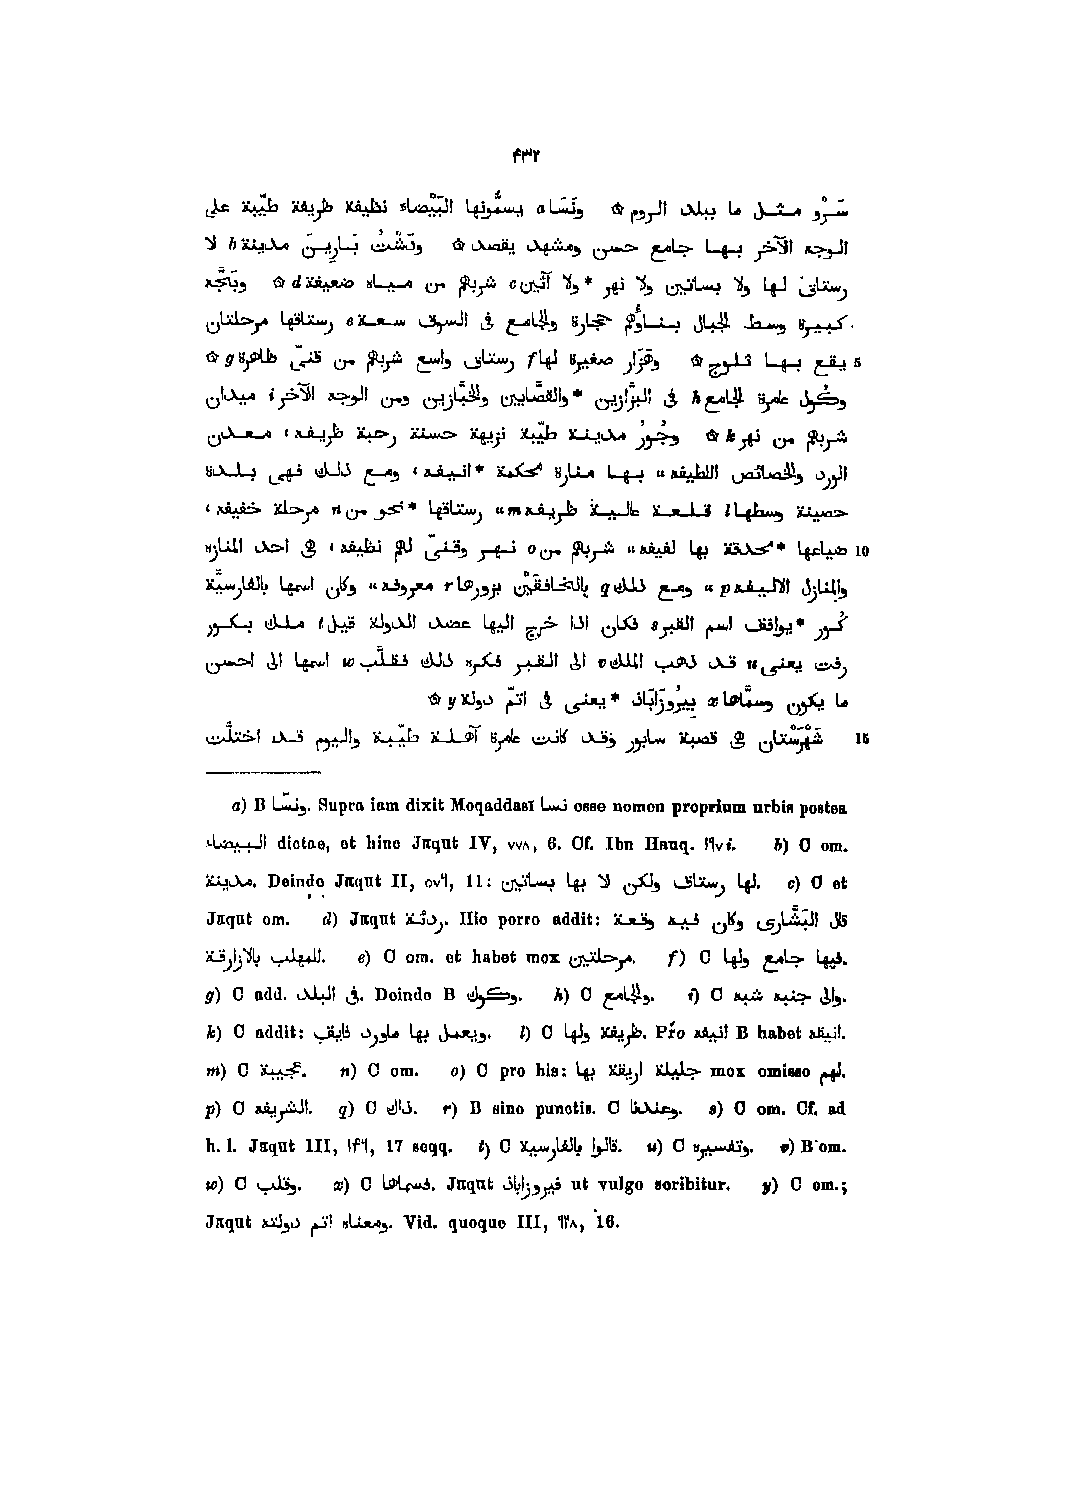 ٤٣٢
سَرْو مثل ما ببلد الروم ۞ ونَسَا a يسمُّونها البَيْضاء نظيفة ظريفة طيّبة على
الوجه الآخر بها جامع حسن ومشهد يقصد ۞ ودَشْت بَارِين مدينة b لا
رستاق لها ولا بساتين ولا نهر *ولا آئين c شربهم من مياه ضعيفة d ۞
كبيرة وسط الجبال بناؤهم حجارة والجامع فى السوق سعة e رستاقها مرحلتان
5 يقع بها ثلوج ۞ وهَزَار صغيرة لها f رستاق واسع شربهم من قنىّ ظاهرة g ۞
وكُول عامرة الجامع h فى البزّازين *والقصّابين والخبّازين ومن الوجه الآخر i ميدان
شربهم من نهر k ۞ وجُور مدينة طيّبة نزيهة حسنة رحبة ظريفه، معدن
الورد والخصائص اللطيفه" بها منارة محكمة *انيفه، ومع ذلك فهى بلدة
حصينة وسطها l قلعة عالية ظريفه m" رستاقها *نحو من n مرحلة خفيفه،
10 ضياعها *محدقة بها لفيفه" شربهم من o نهر وقنىّ لهم نظيفه، فى احد المنازه
والمنازل الاليفه p" ومع ذلك q بالخافقَيْن بزورها r معروفه" وكان اسمها بالفارسيّة
كُور *يوافق اسم القبر s فكان اذا خرج اليها عضد الدولة قيل t ملك بكور
رفت يعنى u قد ذهب الملك v الى القبر فكره ذلك فقلّب w اسمها الى احسن
ما يكون وسمّاها x بِيرُوزآبَاذ *يعنى فى اتمّ دولة y ۞
15 شَهْرَسْتان فى قصبة سابور وقد كانت عامرة آهلة طيّبة واليوم قد اختلّت
a) B ونسّا. Supra iam dixit Moqaddasī نسا esse nomen proprium urbis postea
البيضاء dictae, et hinc Jaqut IV, ٧٧٨, 6. Cf. Ibn Hauq. b) C om.
مدينة. Deinde Jaqut II, ٥٧٦, 11: لها رستاق ولكن لا بها بساتين. c) C et
Jaqut om. d) Jaqut ردئة. Hic porro addit: قال البَشَّارى وكان فيه وقعة
للمهلب بالازارقة. e) C om. et habet mox مرحلتين. f) C فيها جامع ولها.
g) C add. فى البلد. Deinde B وكوك. h) C والجامع. i) C والى جنبه شبه.
k) C addit: ويعمل بها ماورد فايق. l) C ظريفة ولها. Pro انيفه B habet انيقه.
m) C عجيبة. n) C om. o) C pro his: جليلة اريقة بها mox omisso لهم.
p) C الشريفه. q) C ذاك. r) B sine punctis. C s) C om. Cf. ad
h. l. Jaqut III, ١٤٦, 17 seqq. t) C قالوا بالفارسية. u) C وتفسيره. v) B om.
w) C وقلب. x) C فسماها. Jaqut فيروزاباذ ut vulgo scribitur. y) C om.;
Jaqut ومعناه اتم دولته. Vid. quoque III, ٦٣٨, 16.